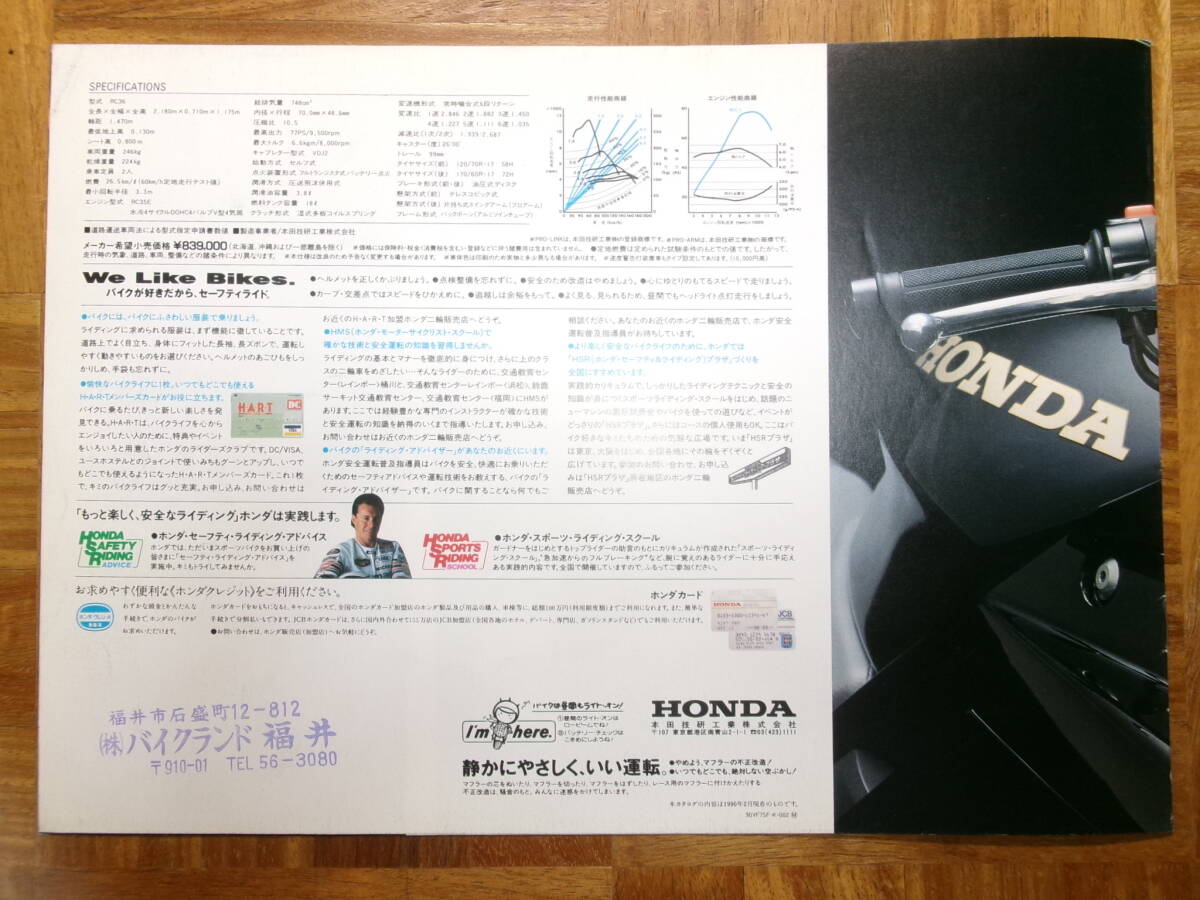 SPECIFICATIONS
型式 RC36
全長×全幅×全高 2.180m×0.710m×1.175m
軸距 1.470m
最低地上高 0.130m
シート高 0.800m
車両重量 246kg
乾燥重量 224kg
乗車定員 2人
燃費 26.5km/ℓ(60km/h定地走行テスト値)
最小回転半径 3.3m
エンジン型式 RC35E
水冷4サイクルDOHC4バルブV型4気筒
総排気量 748cm³
内径×行程 70.0mm×48.6mm
圧縮比 10.5
最高出力 77PS/9,500rpm
最大トルク 6.6kgm/8,000rpm
キャブレター型式 VDJ2
始動方式 セルフ式
点火装置形式 フルトランジスタ式バッテリー点火
潤滑方式 圧送飛沫併用式
潤滑油容量 3.8ℓ
燃料タンク容量 19ℓ
クラッチ形式 湿式多板コイルスプリング
変速機形式 常時噛合式6段リターン
変速比 1速 2.846 2速 1.882 3速 1.450
4速 1.227 5速 1.111 6速 1.035
減速比(1次/2次) 1.939/2.687
キャスター(度) 26°00′
トレール 99mm
タイヤサイズ(前) 120/70R-17 58H
タイヤサイズ(後) 170/60R-17 72H
ブレーキ形式(前・後) 油圧式ディスク
懸架方式(前) テレスコピック式
懸架方式(後) 片持ち式スイングアーム(プロアーム)
フレーム形式 バックボーン(アルミツインチューブ)
走行性能曲線
エンジン性能曲線
■道路運送車両法による型式指定申請書数値 ■製造事業者/本田技研工業株式会社
※PRO-LINKは、本田技研工業㈱の登録商標です。※PRO-ARMは、本田技研工業㈱の商標です。
メーカー希望小売価格 ¥839,000(北海道、沖縄および一部離島を除く) ※価格には保険料・税金(消費税を含む)・登録などに伴う諸費用は含まれていません。 ●定地燃費は定められた試験条件のもとでの値です。したがって、
走行時の気象、道路、車両、整備などの諸条件により異なります。 ※本仕様は改良のため予告なく変更する場合があります。 ※車体色は印刷のため実物と多少異なる場合があります。 ※速度警告灯装着車もタイプ設定してあります。(16,000円高)
We Like Bikes.
バイクが好きだから、セーフティライド。
●ヘルメットを正しくかぶりましょう。●点検整備を忘れずに。●安全のため改造はやめましょう。●心にゆとりのもてるスピードで走りましょう。
●カーブ・交差点ではスピードをひかえめに。●追越しは余裕をもって。●よく見る、見られるため、昼間でもヘッドライト点灯走行をしましょう。
●バイクには、バイクにふさわしい服装で乗りましょう。
ライディングに求められる服装は、まず機能に徹していることです。
道路上でよく目立ち、身体にフィットした長袖、長ズボンで、運転し
やすく動きやすいものをお選びください。ヘルメットのあごひもをしっ
かりしめ、手袋も忘れずに。
●愉快なバイクライフに1枚。いつでもどこでも使える
H・A・R・Tメンバーズカードがお役に立ちます。
バイクに乗るたび、きっと新しい楽しさを発
見できる。H・A・R・Tは、バイクライフを心から
エンジョイしたい人のために、特典やイベント
をいろいろと用意したホンダのライダーズクラブです。DC/VISA、
ユースホステルとのジョイントで使いみちもグーンとアップし、いつで
もどこでも使えるようになったH・A・R・Tメンバーズカード。これ1枚
で、キミのバイクライフはグッと充実。お申し込み、お問い合わせは
HART
DC
お近くのH・A・R・T加盟ホンダ二輪販売店へどうぞ。
●HMS(ホンダ・モーターサイクリスト・スクール)で
確かな技術と安全運転の知識を習得しませんか。
ライディングの基本とマナーを徹底的に身につけ、さらに上のクラ
スの二輪車をめざしたい…そんなライダーのために、交通教育セン
ター(レインボー)桶川と、交通教育センターレインボー(浜松)、鈴鹿
サーキット交通教育センター、交通教育センター(福岡)にHMSが
あります。ここでは経験豊かな専門のインストラクターが確かな技術
と安全運転の知識を納得のいくまで指導いたします。お申し込み、
お問い合わせはお近くのホンダ二輪販売店へどうぞ。
●バイクの「ライディング・アドバイザー」があなたのお近くにいます。
ホンダ安全運転普及指導員はバイクを安全、快適にお乗りいただ
くためのセーフティアドバイスや運転技術をお教えする、バイクの「ラ
イディング・アドバイザー」です。バイクに関することなら何でもご
相談ください。あなたのお近くのホンダ二輪販売店で、ホンダ安全
運転普及指導員がお待ちしています。
●より楽しく安全なバイクライフのために、ホンダでは
「HSR(ホンダ・セーフティ&ライディング)プラザ」づくりを
全国にすすめています。
実践的カリキュラムで、しっかりしたライディングテクニックと安全の
知識が身につくスポーツ・ライディング・スクールをはじめ、話題のニ
ューマシンの試乗試走会やバイクを使っての遊びなど、イベントが
どっさりの「HSRプラザ」。さらにはコースの個人使用もOK。ここはバ
イク好きなキミたちのための気軽な広場です。いま「HSRプラザ」
は東京、大阪をはじめ、全国各地にその輪をぞくぞくと
広げています。参加のお問い合わせ、お申し込
みは「HSRプラザ」所在地区のホンダ二輪
販売店へどうぞ。
「もっと楽しく、安全なライディング」ホンダは実践します。
HONDA
SAFETY
RIDING
ADVICE
●ホンダ・セーフティ・ライディング・アドバイス
ホンダでは、ただいまスポーツバイクをお買い上げの
皆さまに「セーフティ・ライディング・アドバイス」を
実施中。キミもトライしてみませんか。
HONDA
SPORTS
RIDING
SCHOOL
●ホンダ・スポーツ・ライディング・スクール
ガードナーをはじめとするトップライダーの助言のもとにカリキュラムが作成された「スポーツ・ライディ
ング・スクール」。“急加速からのフルブレーキング”など、腕に覚えのあるライダーに十分に手応え
ある実践的内容です。全国で開催していますので、ふるってご参加ください。
お求めやすく便利なく〈ホンダクレジット〉をご利用ください。
ホンダカード
ホンダクレジット
わずかな頭金とかんたんな
手続きで ホンダのバイクが
お求めいただけます。
ホンダカードをおもちになると、キャッシュレスで、全国のホンダカード加盟店のホンダ製品及び用品の購入、車検等に、総額100万円(利用限度額)までご利用になれます。また、簡単な
手続きで分割払いもできます。JCBホンダカードは、さらに国内外合わせて155万店のJCB加盟店(全国各地のホテル、デパート、専門店、ガソリンスタンドなど)でもご利用いただけます。
●お問い合わせは、ホンダ販売店(加盟店)へお気軽にどうぞ。
HONDA
JCB
福井市石盛町12-812
㈱バイクランド福井
〒910-01 TEL 56-3080
バイクは昼間もライト・オン!
I'm here.
①昼間のライト・オンは
ロービームでね!
②バッテリー・チェックは
こまめにしようね!
HONDA
本田技研工業株式会社
〒107 東京都港区南青山2-1-1 ☎03(423)1111
静かにやさしく、いい運転。
●やめよう、マフラーの不正改造!
●いつでもどこでも、絶対しない空ぶかし!
マフラーの芯をぬいたり、マフラーを切ったり、マフラーをはずしたり、レース用のマフラーに付けかえたりする
不正改造は、騒音のもと。みんなに迷惑をかけてしまいます。
本カタログの内容は1990年2月現在のものです。
HONDA